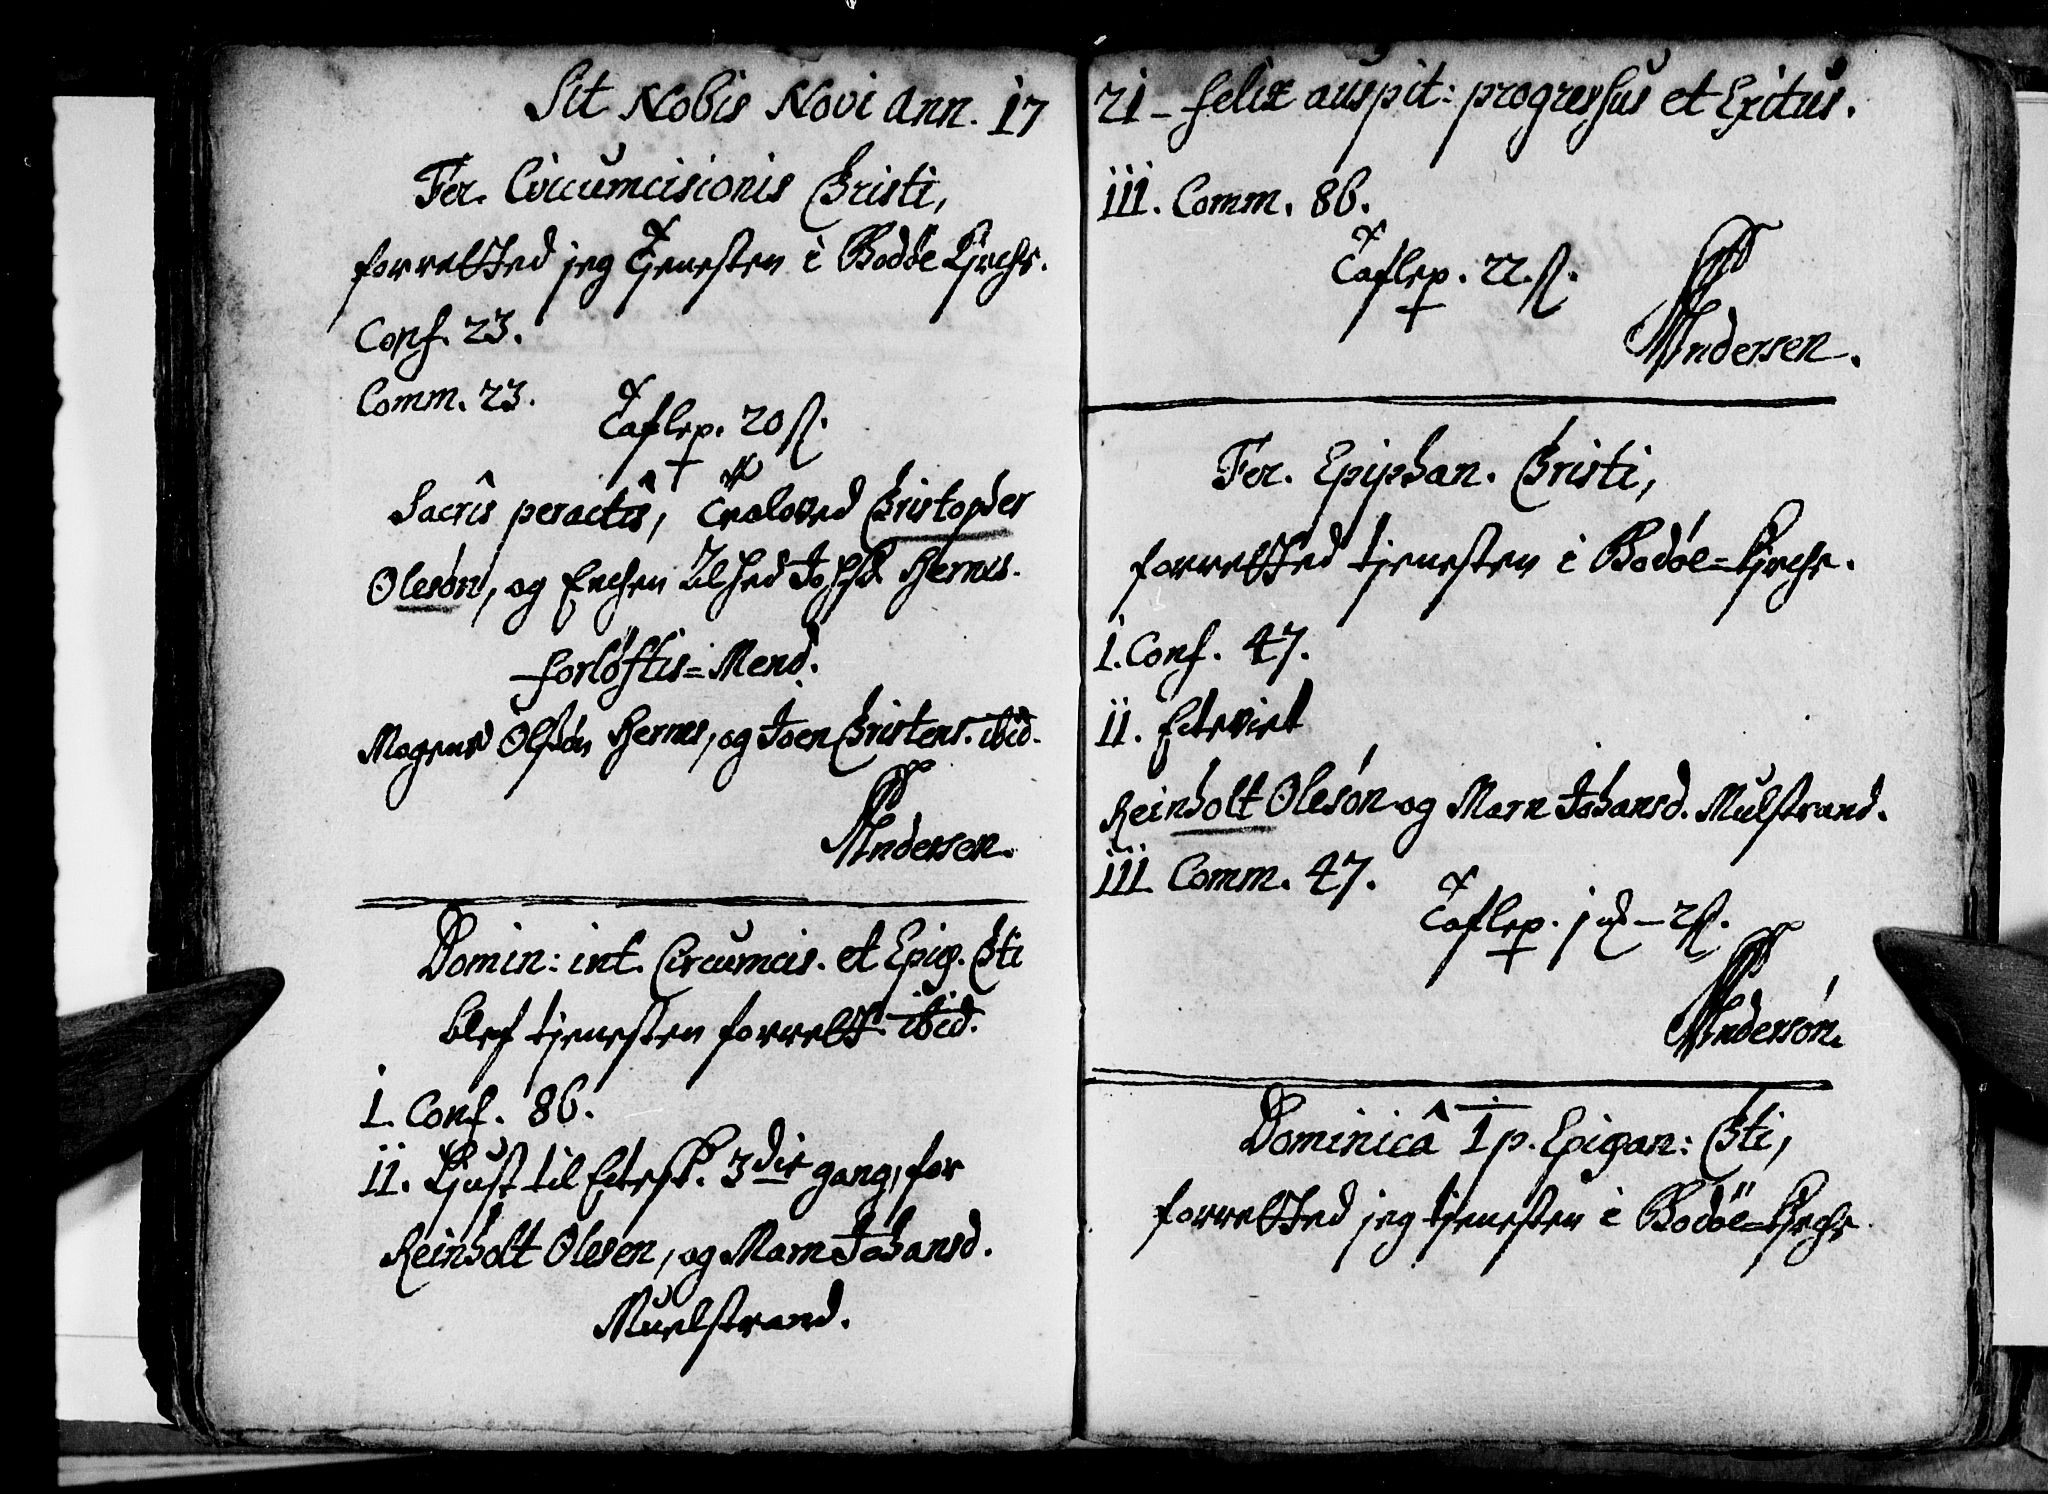 Sit Nobis Novi Ann. 17
Fer. Circumcisionis Christi,
forretted jeg Tjenesten i Bodöe Kirche.
Conf. 23.
Comm. 23.
Taflep. 20 ß.
Sacris peractis, Troloved Christopher
Olesón, og Enchen Johsd. Hernes.
forlöftis=Mend.
Mogens Olsön Hernes, og Joen Christens. ibid.
Andersen.
Domin: int. Circumcis. et Epip. Chti
blef tjenesten forrett. ibid.
i. Conf. 86.
ii. Liust til Ectesk. 3die gang, for
Reinholt Olesen, og Marn Johansd.
Muelstrand.
21 - felix auspit: progressus et Exitus.
iii. Comm. 86.
Taflep. 22. ß.
Andersen.
Fer. Epiphan. Christi,
forretted tjenesten i Bodóe=Kirche.
i. Conf. 47.
ii. Ecteviet
Reinholt Olesón og Marn Johansd. Mulstrand.
iii. Comm. 47.
Taflep. j - 2 ß.
Andersón.
Dominicâ 1 p. Epipan: Chti,
forretted jeg tjenesten i Bodöe=Kirche